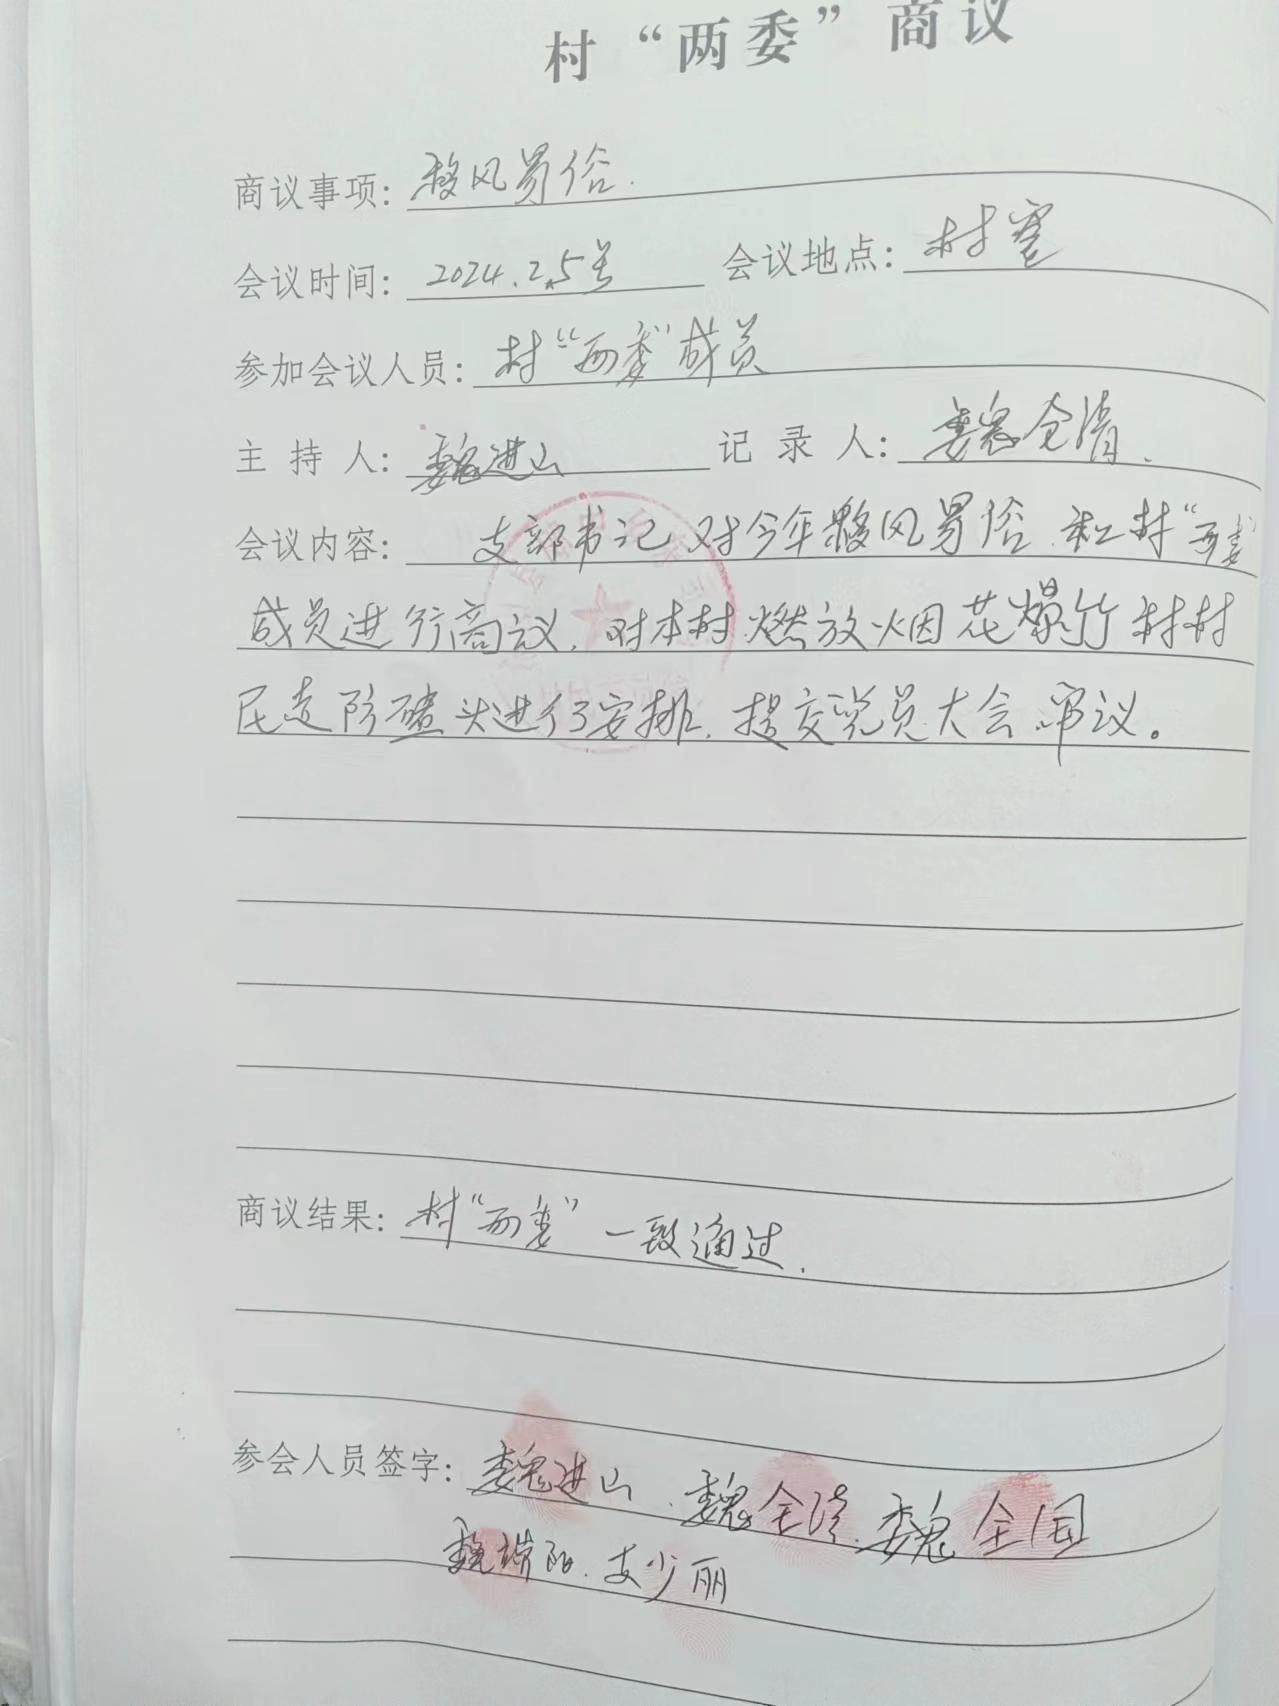 村“两委”商议
商议事项：移风易俗.
会议时间：2024.2.5号 会议地点：村室
参加会议人员：村“两委”成员
主持人：魏进山 记录人：魏全清.
会议内容：支部书记对今年移风易俗.和村“两委”
成员进行商议，对本村燃放烟花爆竹村村
民走防碴头进行了安排，提交党员大会审议。
商议结果：村“两委”一致通过.
参会人员签字：魏进山.魏全清.魏全国
魏瑞阳.支少丽